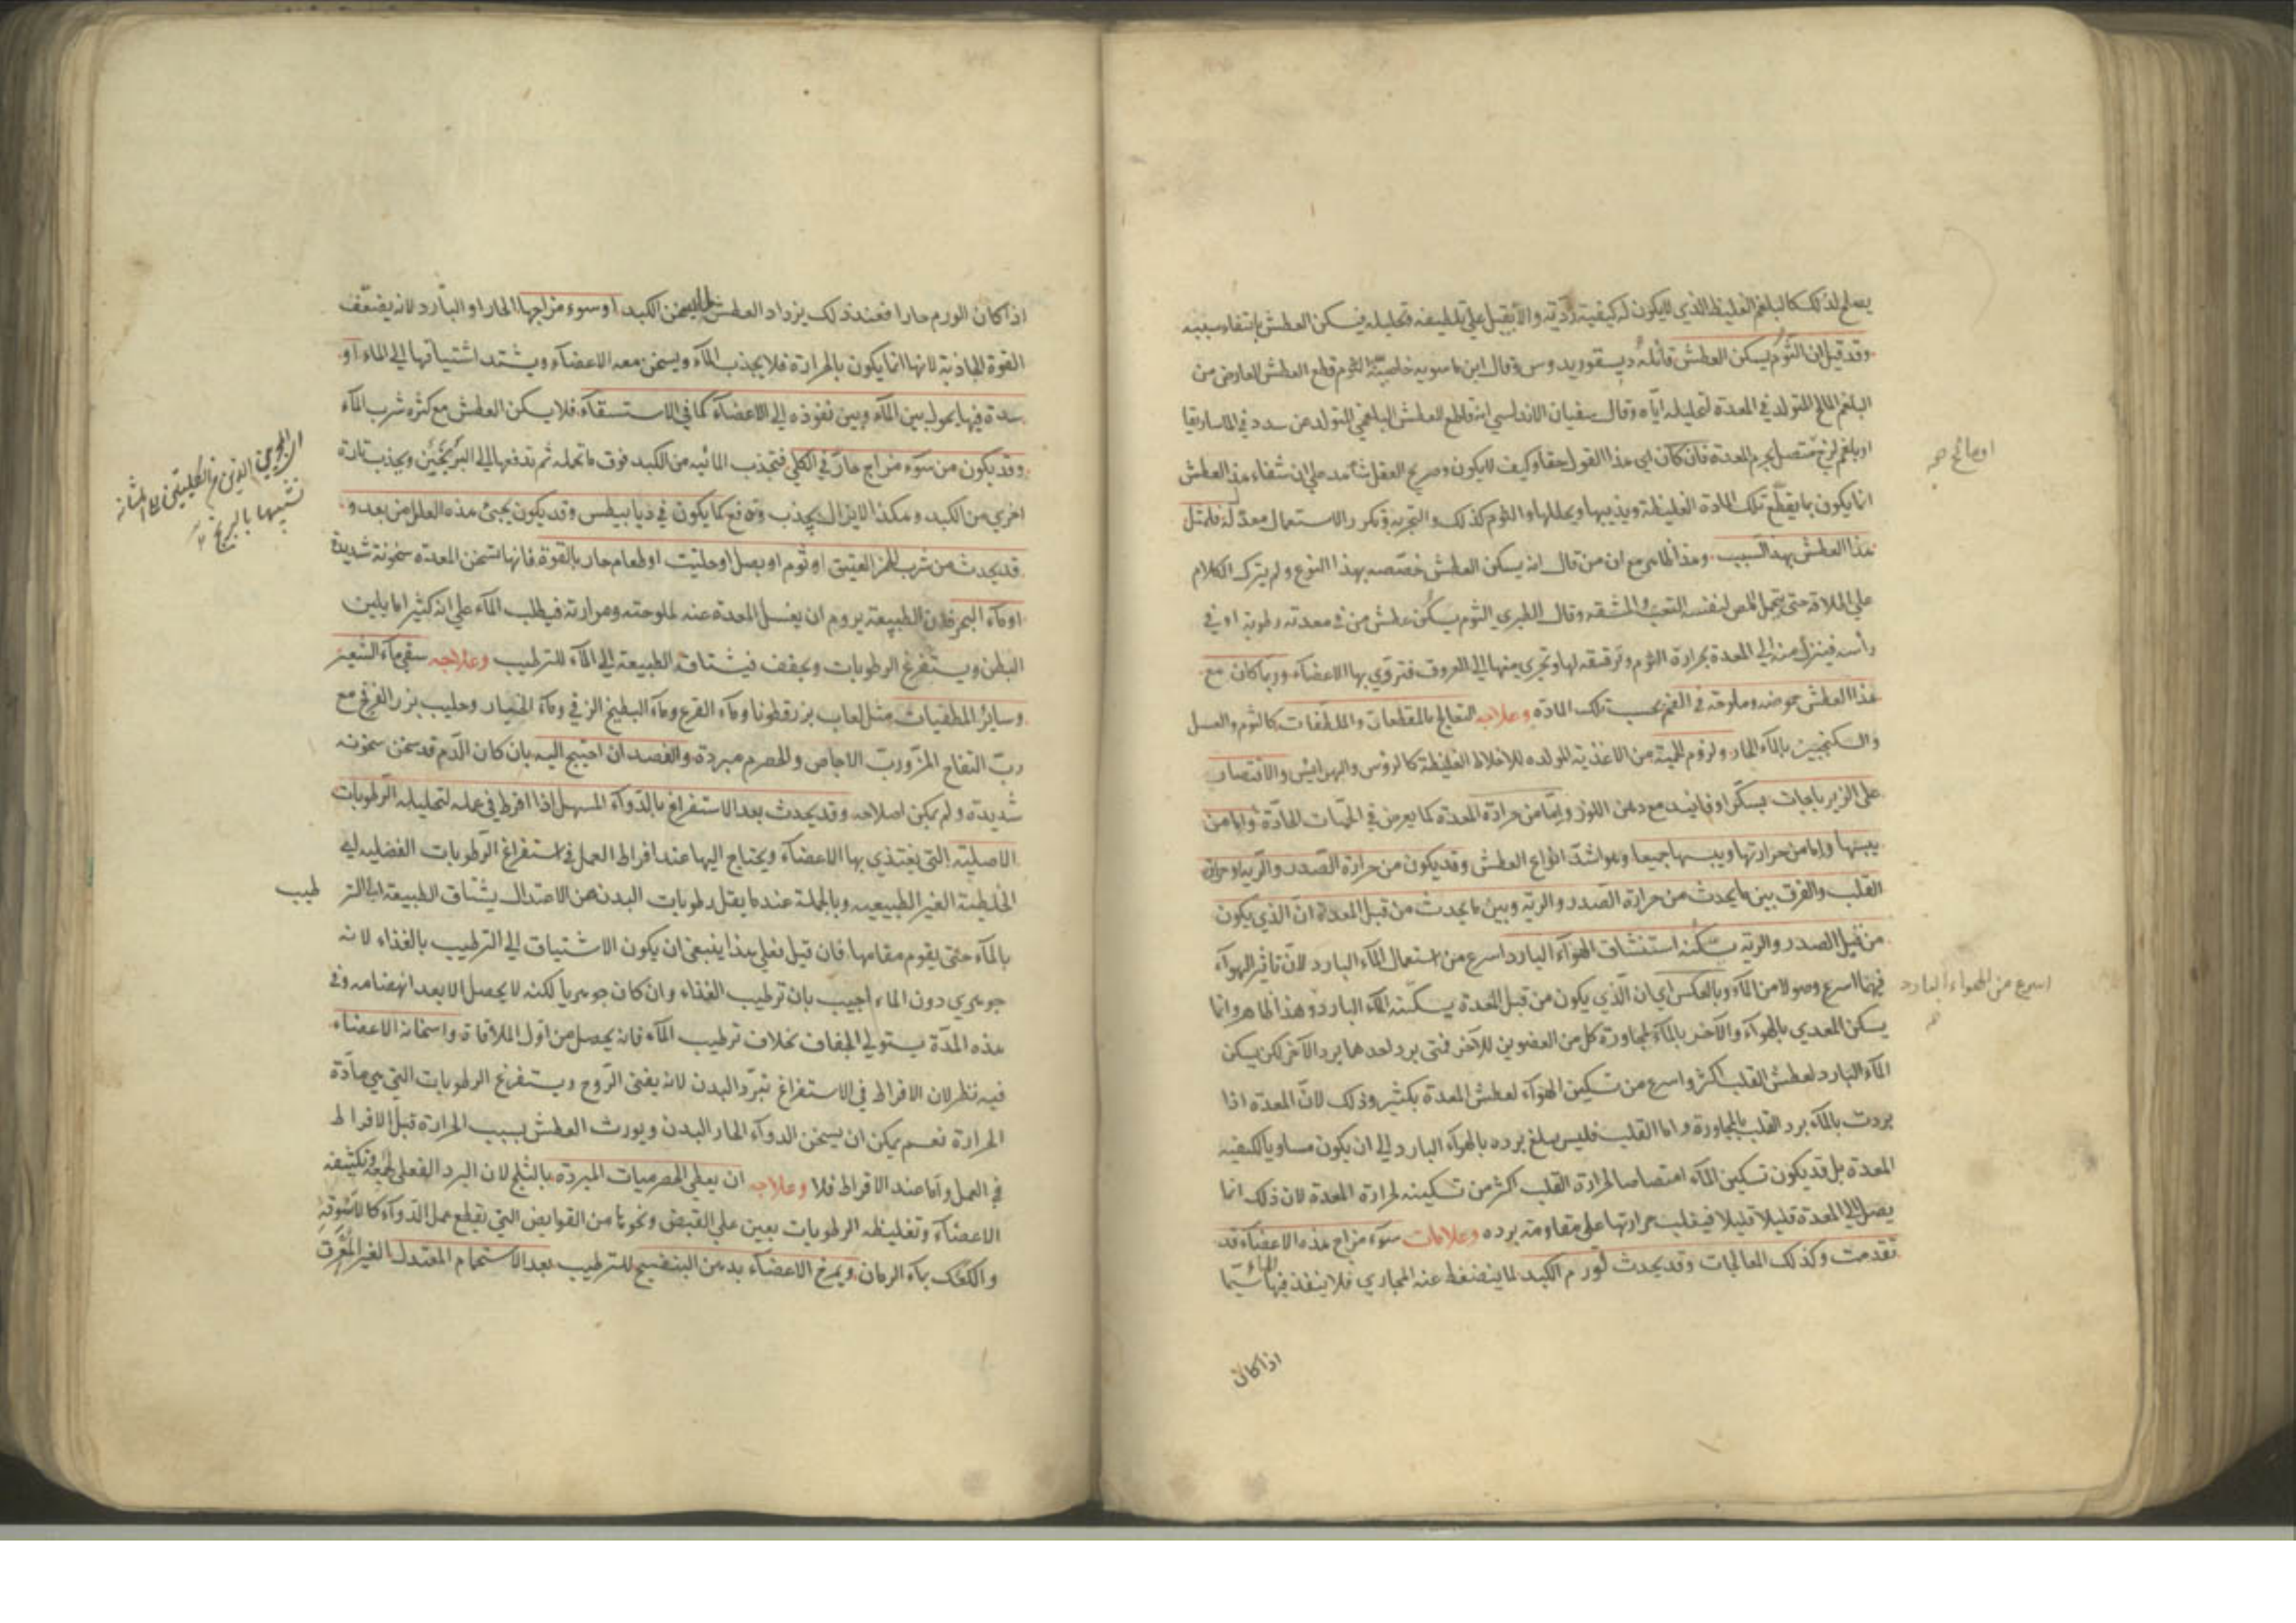 يصلح لذلك كالبلغم الغليظ الذي لا يكون له كيفية رديّة والا يقبل علي تلطيفه وتحليله فيسكن العطش بانتفاء سببه
وقد قيل ان الثوم يسكن العطش قائله ديسقوريدوس وقال ابن ماسويه خاصيّة الثوم قطع العطش العارض من
البلغم المالح المتولد في المعدة لتحليله ايّاه وقال سفيان الاندلسي انه قاطع للعطش البلغمي المتولد من سدد في الماساريقا
او بلغم لزج متصل بجرم المعدة فان كان اي هذا القول حقا وكيف لا يكون وصريح العقل شاهد علي ان شفاء هذا العطش
انما يكون بما يقطع تلك المادة الغليظة ويذيبها ويحللها والثوم كذلك والتجربة وتكرر الاستعمال معدّ له فلمثل
هذا العطش بهذا السبب وهذا ظاهر مع ان من قال انه يسكن العطش خصّصه بهذا النوع ولم يترك الكلام
علي اطلاقه حتى يتحمل المص لنفسه التعب والمشقه وقال الطبري الثوم يسكن عطش من في معدته رطوبة او في
رأسه فينزل منه الي المعدة بحرارة الثوم وترقيقه لها وتجري منها الي العروق فتروي بها الاعضاء وربما كان مع
هذا العطش حموضه وملوحة في الفم بحسب تلك المادة وعلاجه التعالج بالمقطعات والملطّفات كالثوم والعسل
والسكنجبين بالماء الحار ولزوم الحمية من الاغذية المولده للاخلاط الغليظة كالرؤس والهرايس والاقتصار
على الزيرباجات بسكر او فانيذ مع دهن اللوز وامّا من حرارة المعدة كما يعرض في الحميّات الحادّة وامّا من
يبسها وامّا من حرارتها ويبسها جميعا وهو اشدّ انواع العطش وقد يكون من حرارة الصدر والرّية او حرارة
القلب والفرق بين ما يحدث من حرارة الصدر والرية وبين ما يحدث من قبل المعدة انّ الذي يكون
من قبل الصدر والرية يسكّنه استنشاق الهواء البارد اسرع من استعمال الماء البارد لانّ تاثير الهواء
فيهما اسرع وصولا من الماء وبالعكس اي ان الّذي يكون من قبل المعدة يسكّنه الماء البارد وهذا ظاهر وانما
يسكن المعدي بالهواء والآخر بالماء لمجاورة كل من العضوين للآخر فمتى برد احدهما برد الآخر لكن يسكن
الماء البارد لعطش القلب اكثر واسرع من تسكين الهواء لعطش المعدة بكثير وذلك لانّ المعدة اذا
بردت بالماء برد القلب بالمجاورة واما القلب فليس يبلغ برده بالهواء البارد الي ان يكون مساويا لكيفيه
المعدة بل قد يكون تسكين الماء امتصاصا لحرارة القلب اكثر من تسكينه لحرارة المعدة لان ذلك انما
يصل الي المعدة قليلا قليلا فيغلب حرارتها على مقاومته برده وعلامات سوء مزاج هذه الاعضاء قد
تقدمت وكذلك المعالجات وقد يحدث لورم الكبد لما ينضغط عنه المجاري فلا ينفذ فيها الماء سيّما
او مالح صح
اسرع من الهواء البارد
اذا كان
اذا كان الورم حارا فعند ذلك يزداد العطش لما يسخن الكبد او سوء مزاجها الحار او البارد لانه يضعّف
القوة الجاذبة لانها انما يكون بالحرارة فلا يجذب الماء ويسخن معه الاعضاء ويشتد اشتياقها الي الماء او
سدة فيها يحول بين الماء وبين نفوذه الي الاعضاء كما في الاستسقاء فلا يسكن العطش مع كثرة شرب الماء
وقد يكون من سوء مزاج حارّ في الكلي فتجذب المائيه من الكبد فوق ما تحمله ثم تدفعها الي البربخين ويجذب تارة
اخري من الكبد وهكذا لا يزال يجذب ويدفع كما يكون في ذيابيطس وقد يكون يجئ هذه العلل من بعد و
قد يحدث من شرب الخمر العتيق او ثوم او بصل او حلتيت او طعام حار بالقوة فانها تسخن المعدة سخونة شديدة
او ماء البحر فلان الطبيعة يروم ان يغسل المعدة عنه لملوحته ومرارته فيطلب الماء علي انه كثيرا ما يلين
البطن ويستفرغ الرطوبات ويجفف فيشتاقه الطبيعة الي الماء للترطيب وعلاجه سقي ماء الشعير
وساير المطفيات مثل لعاب بزر قطونا وماء القرع وماء البطيخ الزقي وماء الخيار وحليب بزر الفرفخ مع
ربّ التفاح المزّ وربّ الاجاص والحصرم مبردة والفصد ان احتيج اليه بان كان الدّم قد سخن سخونه
شديدة ولم يمكن اصلاحه وقد يحدث بعد الاستفراغ بالدّواء المسهل اذا افرط في عمله لتحليله الرّطوبات
الاصلية التي يغتذي بها الاعضاء ويحتاج اليها عند افراط العمل في استفراغ الرّطوبات الفضليه اي
الخلطية الغير الطبيعيه وبالجملة عندما يقل رطوبات البدن عن الاعتدال يشتاق الطبيعة الي التر طيب
بالماء حتى يقوم مقامها فان قيل فعلي هذا ينبغي ان يكون الاشتياق الي الترطيب بالغذاء لانه
جوهري دون الماء اجيب بان ترطيب الغذاء وان كان جوهريا لكنه لا يحصل الا بعد انهضامه وفي
هذه المدّة يستولي الجفاف بخلاف ترطيب الماء فانه يحصل من اوّل الملاقاة واسخانه الاعضاء
فيه نظر لان الافراط في الاستفراغ تبرّد البدن لانه يفنى الرّوح ويستفرغ الرطوبات التي هي مادّة
الحرارة نعم يمكن ان يسخن الدواء الحار البدن ويورث العطش بسبب الحرارة قبل الافراط
في العمل وامّا عند الافراط فلا وعلاجه ان يعطي الحصرميات المبردّه بالثلج لان البرد الفعلي لجمعه وتكثيفه
الاعضاء وتغليظه الرطوبات يعين علي القبض ونحوها من القوابض التي تقطع عمل الدّواء كالاسوقة
والكعك بماء الرمان ويمرخ الاعضاء بدهن البنفسج للترطيب بعد الاستحمام المعتدل الغير المعرق
اي المجريين الذين من الكليتين الي المثانة
تشبيها بالبربخ